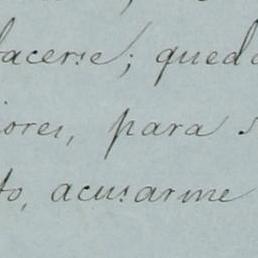 hacerse; queda
iores, para s
to, acusarme